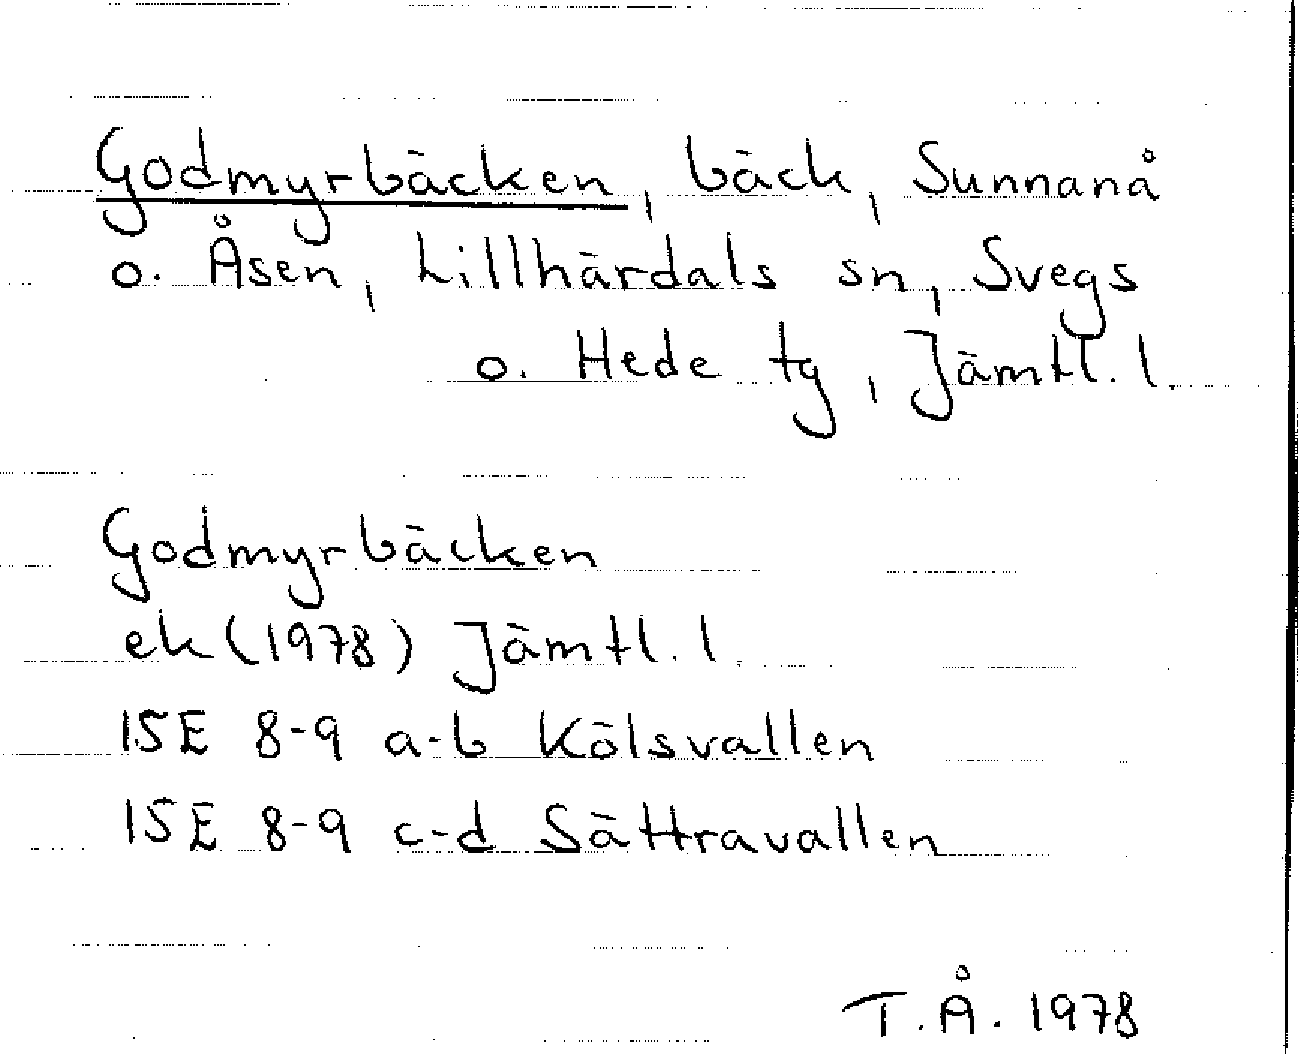 Godmyrbäcken, bäck, Sunnanå
o. Åsen, Lillhärdals sn, Svegs
o. Hede tg, Jämtl. l.
Godmyrbäcken
ek (1978) Jämtl. l.
15E 8-9 a-b Kölsvallen
15E 8-9 c-d Sättravallen
T.Å. 1978